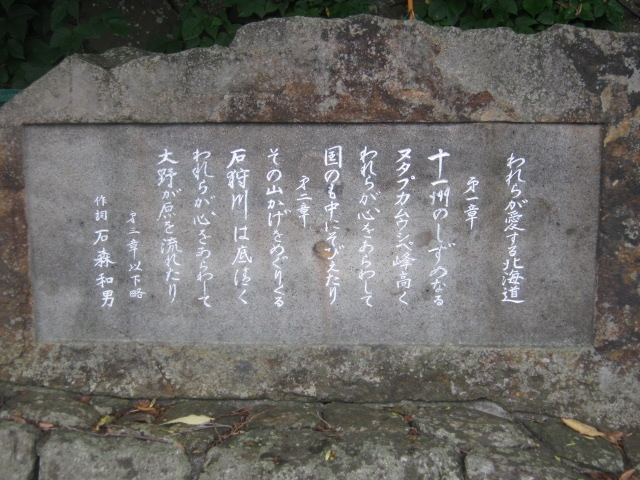 われらが愛する北海道
第一章
十一州のしずめなる
ヌタプカムウシペ峰高く
われらが心をあらわして
国のも中にそびえたり
第二章
その山かげをめぐりくる
石狩川は底清く
われらが心をあらわして
大野が原を流れたり
第三章以下略
作詞 石森和男